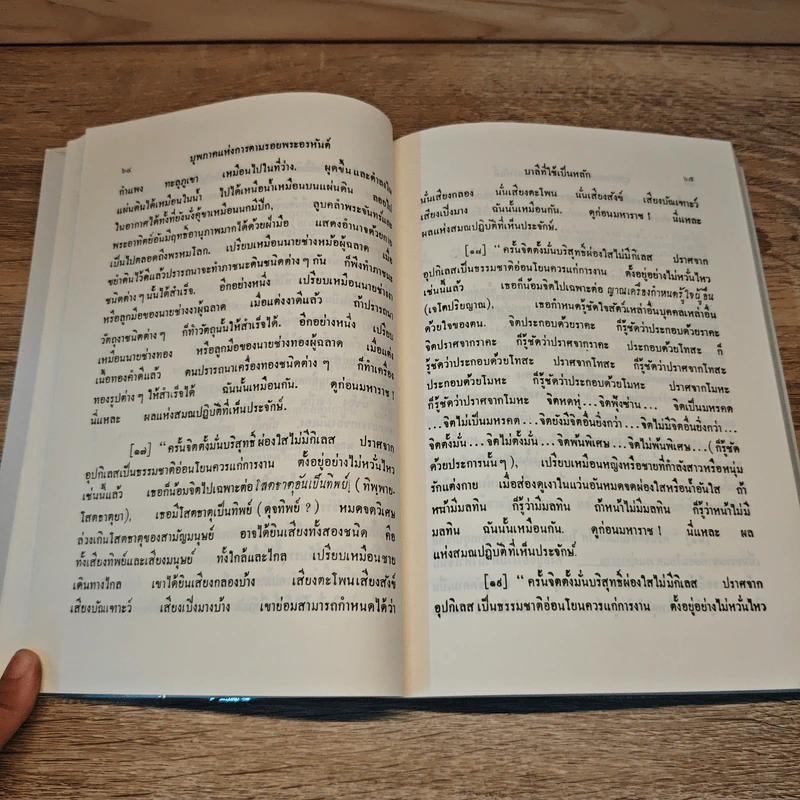 ๖๔ บุพภาคแห่งการตามรอยพระอรหันต์
กำแพง ทะลุภูเขา เหมือนไปในที่ว่าง, ผุดขึ้น และดำลงใน
แผ่นดินได้เหมือนในน้ำ ไปได้เหนือน้ำเหมือนบนแผ่นดิน ลอยไป
ในอากาศได้ทั้งที่ยังนั่งคู้ขาเหมือนนกมีปีก, ลูบคลำพระจันทร์และ
พระอาทิตย์อันมีฤทธิ์อานุภาพมากได้ด้วยฝ่ามือ แสดงอำนาจด้วยกาย
เป็นไปตลอดถึงพรหมโลก. เปรียบเหมือนนายช่างหม้อผู้ฉลาด เมื่อ
ขยำดินไว้ดีแล้วปรารถนาจะทำภาชนะดินชนิดต่าง ๆ กัน ก็พึงทำภาชนะ
ชนิดต่าง ๆ นั้นได้สำเร็จ. อีกอย่างหนึ่ง เปรียบเหมือนนายช่างงา
หรือลูกมือของนายช่างงาผู้ฉลาด เมื่อแต่งงาดีแล้ว ถ้าปรารถนา
วัตถุงาชนิดต่าง ๆ ก็ทำวัตถุนั้นให้สำเร็จได้. อีกอย่างหนึ่ง เปรียบ
เหมือนนายช่างทอง หรือลูกมือของนายช่างทองผู้ฉลาด เมื่อแต่ง
เนื้อทองคำดีแล้ว ตนปรารถนาเครื่องทองชนิดต่าง ๆ ก็ทำเครื่อง
ทองรูปต่าง ๆ ให้สำเร็จได้ ฉันนั้นเหมือนกัน. ดูก่อนมหาราช !
นี่แหละ ผลแห่งสมณปฏิบัติที่เห็นประจักษ์.
[๑๗] “ ครั้นจิตตั้งมั่นบริสุทธิ์ ผ่องใสไม่มีกิเลส ปราศจาก
อุปกิเลสเป็นธรรมชาติอ่อนโยนควรแก่การงาน ตั้งอยู่อย่างไม่หวั่นไหว
เช่นนี้แล้ว เธอก็น้อมจิตไปเฉพาะต่อ โสตธาตุอันเป็นทิพย์, ( ทิพฺพาย-
โสตธาตุยา ), เธอมีโสตธาตุเป็นทิพย์ ( ดุจทิพย์ ? ) หมดจดวิเศษ
ล่วงเกินโสตธาตุของสามัญมนุษย์ อาจได้ยินเสียงทั้งสองชนิด คือ
ทั้งเสียงทิพย์และเสียงมนุษย์ ทั้งไกล้และไกล เปรียบเหมือนชาย
เดินทางไกล เขาได้ยินเสียงกลองบ้าง เสียงตะโพน เสียงสังข์
เสียงบัณเฑาะว์ เสียงเปิงมางบ้าง เขาย่อมสามารถกำหนดได้ว่า
บาลีที่ใช้เป็นหลัก ๖๕
นั่นเสียงกลอง นั่นเสียงตะโพน นั่นเสียงสังข์ เสียงบัณเฑาะว์
เสียงเปิงมาง ฉันนั้นเหมือนกัน. ดูก่อนมหาราช ! นี่แหละ
ผลแห่งสมณปฏิบัติที่เห็นประจักษ์.
[๑๘] “ ครั้นจิตตั้งมั่นบริสุทธิ์ผ่องใสไม่มีกิเลส ปราศจาก
อุปกิเลสเป็นธรรมชาติอ่อนโยนควรแก่การงาน ตั้งอยู่อย่างไม่หวั่นไหว
เช่นนี้แล้ว เธอก็น้อมจิตไปเฉพาะต่อ ญาณเครื่องกำหนดรู้ใจผู้อื่น
( เจโตปริยญาณ ), เธอกำหนดรู้ชัดใจสัตว์เหล่าอื่นบุคคลเหล่าอื่น
ด้วยใจของตน. จิตประกอบด้วยราคะ ก็รู้ชัดว่าประกอบด้วยราคะ
จิตปราศจากราคะ ก็รู้ชัดว่าปราศจากราคะ จิตประกอบด้วยโทสะ ก็
รู้ชัดว่าประกอบด้วยโทสะ ปราศจากโทสะ ก็รู้ชัดว่าปราศจากโทสะ
ประกอบด้วยโมหะ ก็รู้ชัดว่าประกอบด้วยโมหะ ปราศจากโมหะ
ก็รู้ชัดว่าปราศจากโมหะ จิตหดหู่...จิตฟุ้งซ่าน... จิตเป็นมหรคต
...จิตไม่เป็นมหรคต...จิตยังมีจิตอื่นยิ่งกว่า...จิตไม่มีจิตอื่นยิ่งกว่า...
จิตตั้งมั่น...จิตไม่ตั้งมั่น...จิตพ้นพิเศษ...จิตไม่พ้นพิเศษ...( ก็รู้ชัด
ด้วยประการนั้น ๆ ), เปรียบเหมือนหญิงหรือชายที่กำลังสาวหรือหนุ่ม
รักแต่งกาย เมื่อส่องดูเงาในแว่นอันหมดจดผ่องใสหรือน้ำอันใส ถ้า
หน้ามีมลทิน ก็รู้ว่ามีมลทิน ถ้าหน้าไม่มีมลทิน ก็รู้ว่าหน้าไม่มี
มลทิน ฉันนั้นเหมือนกัน. ดูก่อนมหาราช ! นี่แหละ ผล
แห่งสมณปฏิบัติที่เห็นประจักษ์.
[๑๙] “ ครั้นจิตตั้งมั่นบริสุทธิ์ผ่องใสไม่มีกิเลส ปราศจาก
อุปกิเลส เป็นธรรมชาติอ่อนโยนควรแก่การงาน ตั้งอยู่อย่างไม่หวั่นไหว